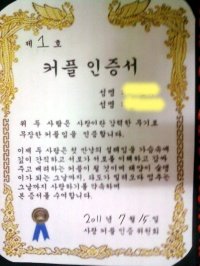 제 1 호
커플 인증서
성명
성명
위 두 사람은 사랑이란 강력한 무기로
무장한 커플임을 인증합니다.
이에 두 사람은 첫 만남의 설레임을 가슴속에
깊이 간직하고 서로가 서로를 이해하고 감싸
주고 배려하는 커플이 될 것이며 태양이 숨쉬
그날까지, 파도가 멈추는
그날까지 사랑하기를 약속하며
본 증서를 수여합니다.
2011년 7월 15일
사랑 커플 인증 위원회